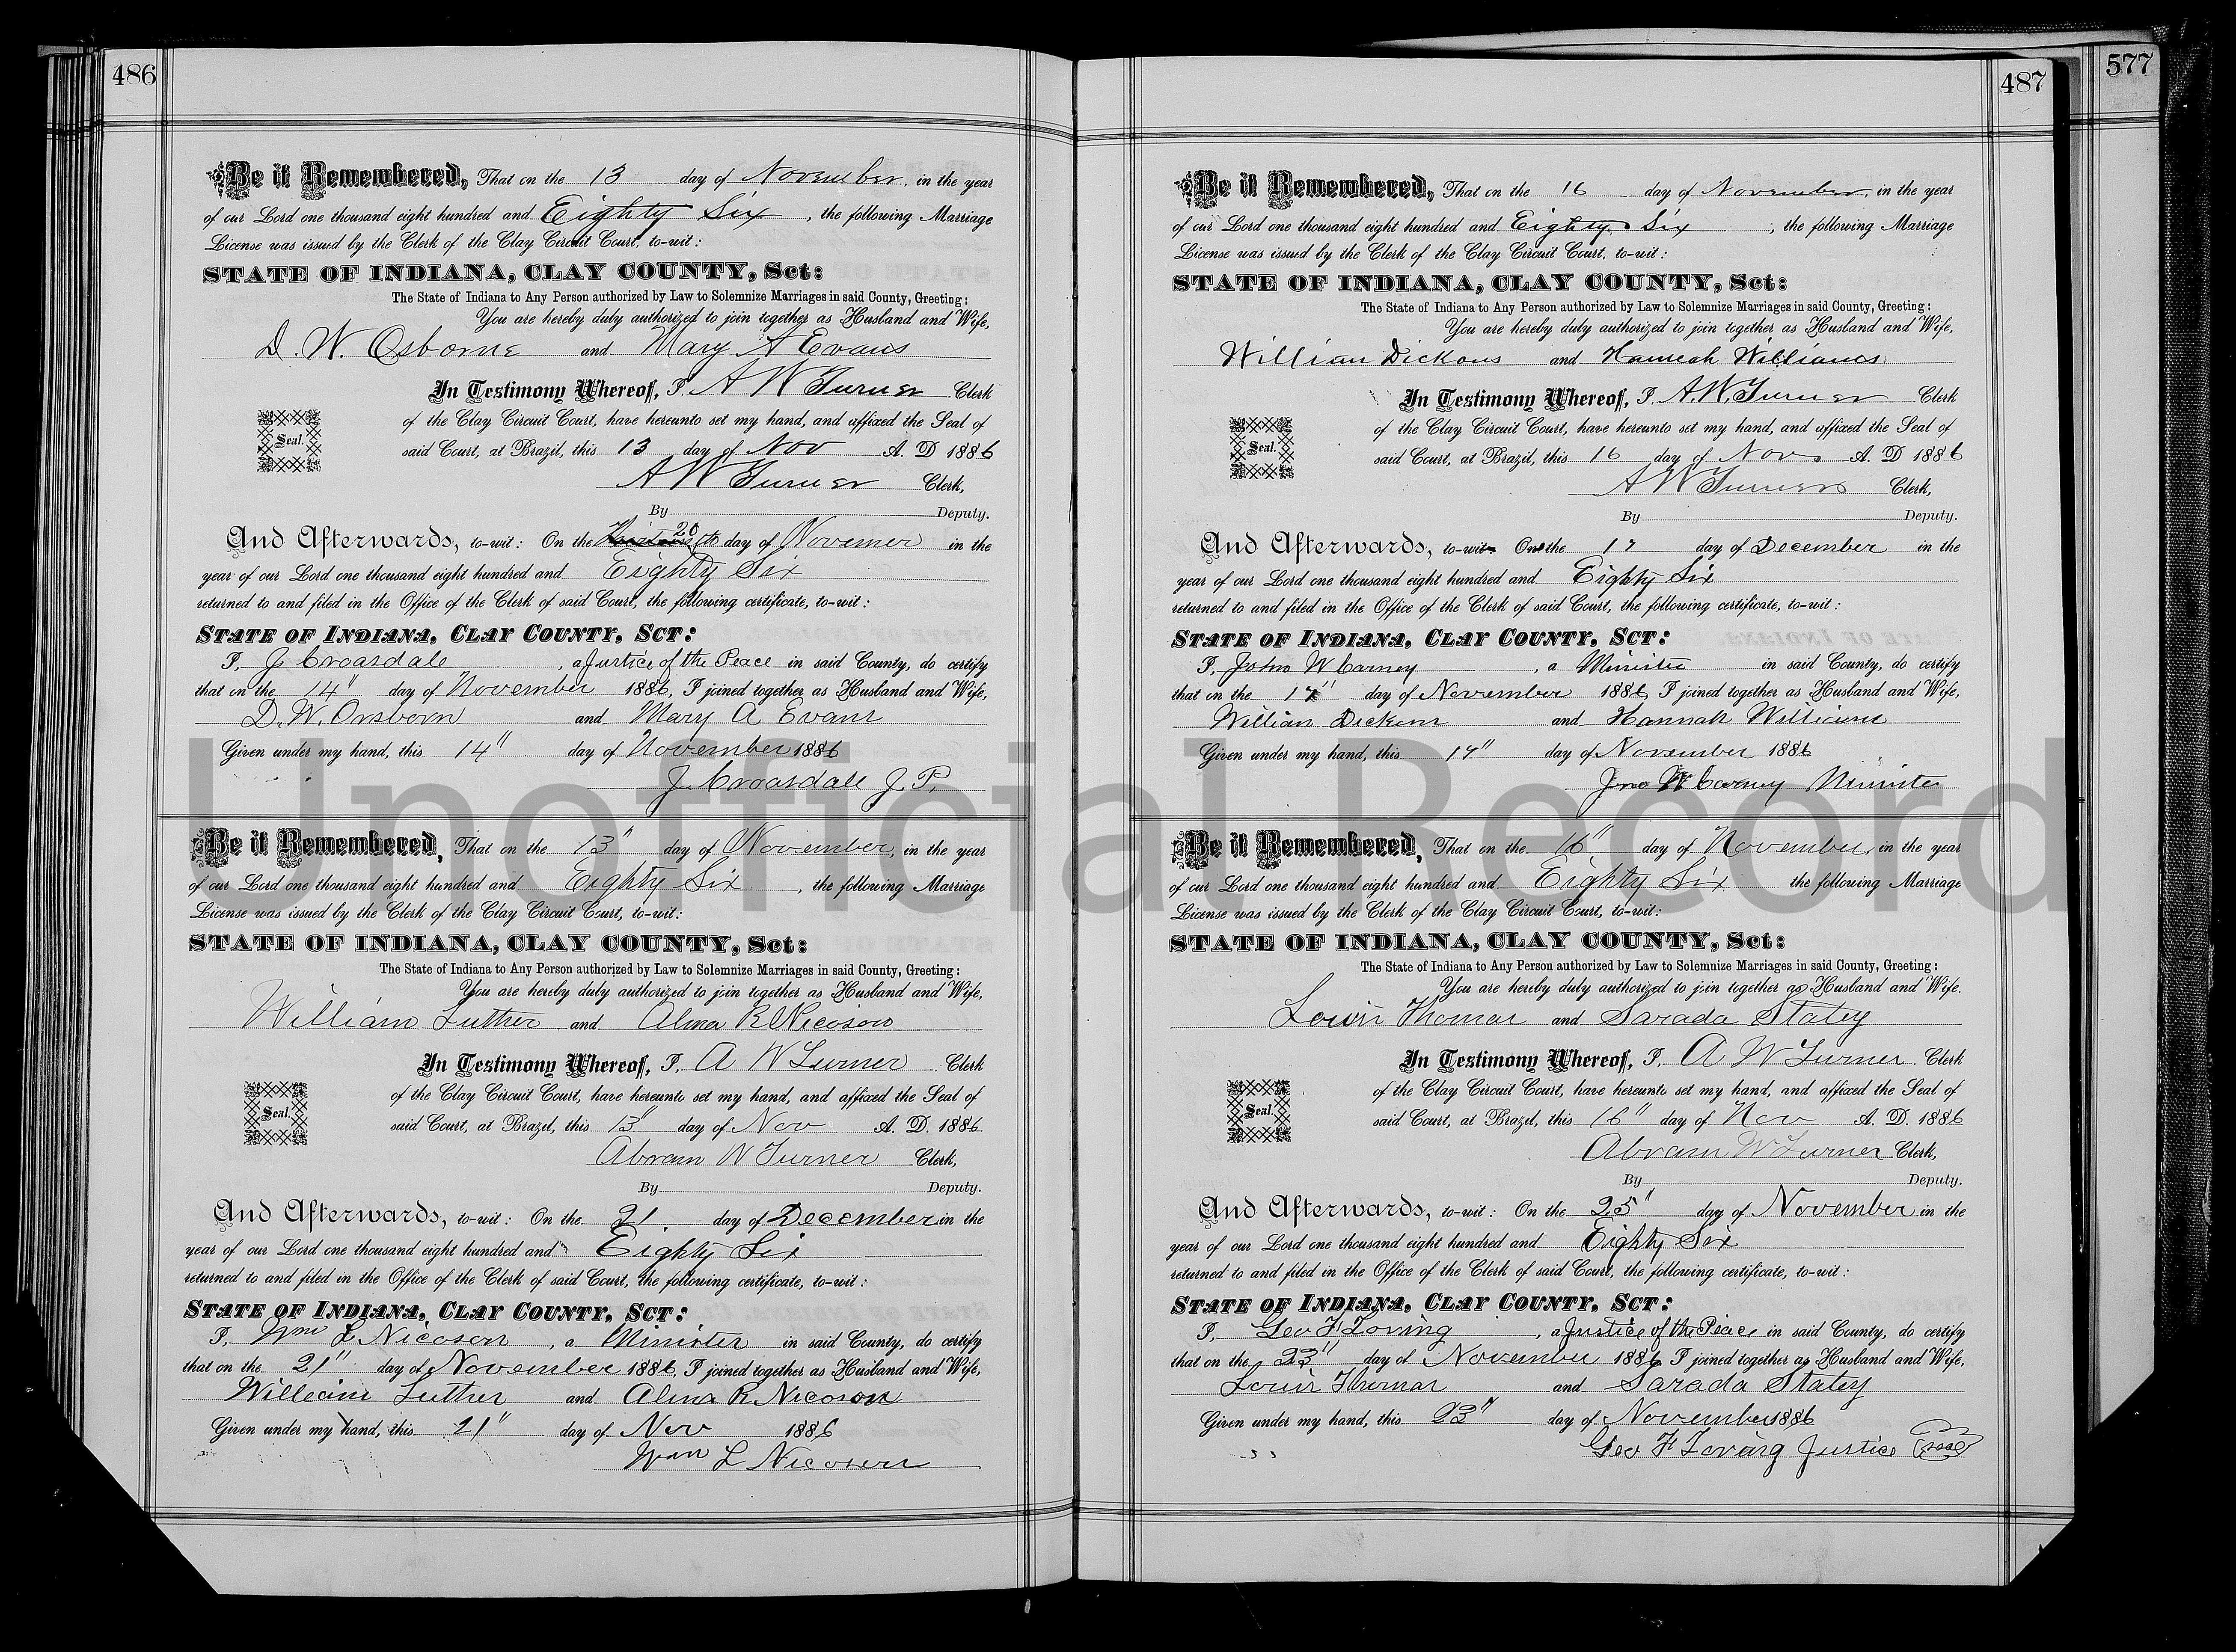 486
Be it Remembered, That on the 13 day of November, in the year
of our Lord one thousand eight hundred and Eighty Six, the following Marriage
License was issued by the Clerk of the Clay Circuit Court, to-wit:
STATE OF INDIANA, CLAY COUNTY, Sct:
The State of Indiana to Any Person authorized by Law to Solemnize Marriages in said County, Greeting:
You are hereby duly authorized to join together as Husband and Wife,
D. W. Osborne and Mary A Evans
In Testimony Whereof, I, A W Turner Clerk
of the Clay Circuit Court, have hereunto set my hand, and affixed the Seal of
Seal.
said Court, at Brazil, this 13 day of Nov A. D 1886
A W Turner Clerk,
By Deputy.
And Afterwards, to-wit: On the 20 day of Novemer in the
year of our Lord one thousand eight hundred and Eighty Six
returned to and filed in the Office of the Clerk of said Court, the following certificate, to-wit:
STATE OF INDIANA, CLAY COUNTY, SCT:
I, J Croasdale, a Justice of the Peace in said County, do certify
that on the 14" day of November 1886, I joined together as Husband and Wife,
D. W. Orsborn and Mary A Evans
Given under my hand, this 14" day of November 1886
J. Croasdale J. P.
Be it Remembered, That on the 13" day of November, in the year
of our Lord one thousand eight hundred and Eighty Six, the following Marriage
License was issued by the Clerk of the Clay Circuit Court, to-wit:
STATE OF INDIANA, CLAY COUNTY, Sct:
The State of Indiana to Any Person authorized by Law to Solemnize Marriages in said County, Greeting:
You are hereby duly authorized to join together as Husband and Wife,
William Luther and Alma R Nicoson
In Testimony Whereof, I, A W Turner Clerk
of the Clay Circuit Court, have hereunto set my hand, and affixed the Seal of
Seal.
said Court, at Brazil, this 13" day of Nov A. D. 1886
Abram W Turner Clerk,
By Deputy.
And Afterwards, to-wit: On the 21. day of December in the
year of our Lord one thousand eight hundred and Eighty Six
returned to and filed in the Office of the Clerk of said Court, the following certificate, to-wit:
STATE OF INDIANA, CLAY COUNTY, SCT:
I, Wm L Nicoson, a Minister in said County, do certify
that on the 21" day of November 1886, I joined together as Husband and Wife,
William Luther and Alma R Nicoson
Given under my hand, this 21" day of Nov 1886
Wm L Nicoson
487
Be it Remembered, That on the 16 day of November, in the year
of our Lord one thousand eight hundred and Eighty Six, the following Marriage
License was issued by the Clerk of the Clay Circuit Court, to-wit:
STATE OF INDIANA, CLAY COUNTY, Sct:
The State of Indiana to Any Person authorized by Law to Solemnize Marriages in said County, Greeting:
You are hereby duly authorized to join together as Husband and Wife,
William Dickons and Hannah Williams
In Testimony Whereof, I, A. W. Turner Clerk
of the Clay Circuit Court, have hereunto set my hand, and affixed the Seal of
Seal.
said Court, at Brazil, this 16 day of Nov. A. D 1886
A W Turner Clerk,
By Deputy.
And Afterwards, to-wit: On the 17 day of December in the
year of our Lord one thousand eight hundred and Eighty Six
returned to and filed in the Office of the Clerk of said Court, the following certificate, to-wit:
STATE OF INDIANA, CLAY COUNTY, SCT:
I, John W Carney, a Ministe in said County, do certify
that on the 17" day of November 1886, I joined together as Husband and Wife,
William Dickens and Hannah Williams
Given under my hand, this 17" day of November 1886
Jno W Carney Ministe
Be it Remembered, That on the 16" day of November, in the year
of our Lord one thousand eight hundred and Eighty Six the following Marriage
License was issued by the Clerk of the Clay Circuit Court, to-wit:
STATE OF INDIANA, CLAY COUNTY, Sct:
The State of Indiana to Any Person authorized by Law to Solemnize Marriages in said County, Greeting:
You are hereby duly authorized to join together as Husband and Wife.
Louis Thomas and Sarada Staley
In Testimony Whereof, I, A W Turner Clerk
of the Clay Circuit Court, have hereunto set my hand, and affixed the Seal of
Seal.
said Court, at Brazil, this 16" day of Nov A. D. 1886
Abram W Turner Clerk,
By Deputy.
And Afterwards, to-wit: On the 25" day of November in the
year of our Lord one thousand eight hundred and Eighty Six
returned to and filed in the Office of the Clerk of said Court, the following certificate, to-wit:
STATE OF INDIANA, CLAY COUNTY, SCT:
I, Geo F Loving, a Justice of the Peace in said County, do certify
that on the 23" day of November 1886 I joined together as Husband and Wife,
Louis Thomas and Sarada Staley
Given under my hand, this 23" day of November 1886
Geo F Loving Justice Seal
577
Unofficial Record